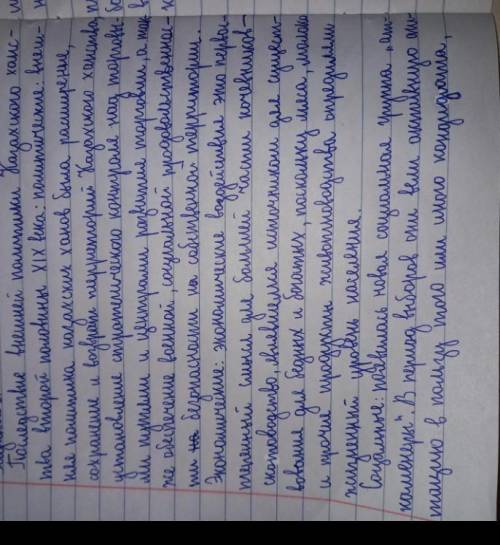 Последствие внешней политики Казахского ханс-
тва второй половины XIX века: политические: внеш-
нее политика казахских ханов была расширение,
сохранение и возврат территорий Казахского ханства
установление стратегического контроля над торговы-
ми путями и центрами развития торговли, а так
же обеспечение военной, социальной, продовольственнос-
ти на безопасности на собственной территории.
Экономические: экономические воздействие это перво-
степенный смысл для большей части кочевников-
скотоводство, являвшееся источником для сущест-
вования для бедных и богатых, поскольку мяса, молоко
и прочие продукты животноводства определяли
жизненный уровень населения.
Социальные: появилась новая социальная группа „ат-
каменеры". В период выборов они вели активную аги-
тацию в пользу того или иного кандидата,